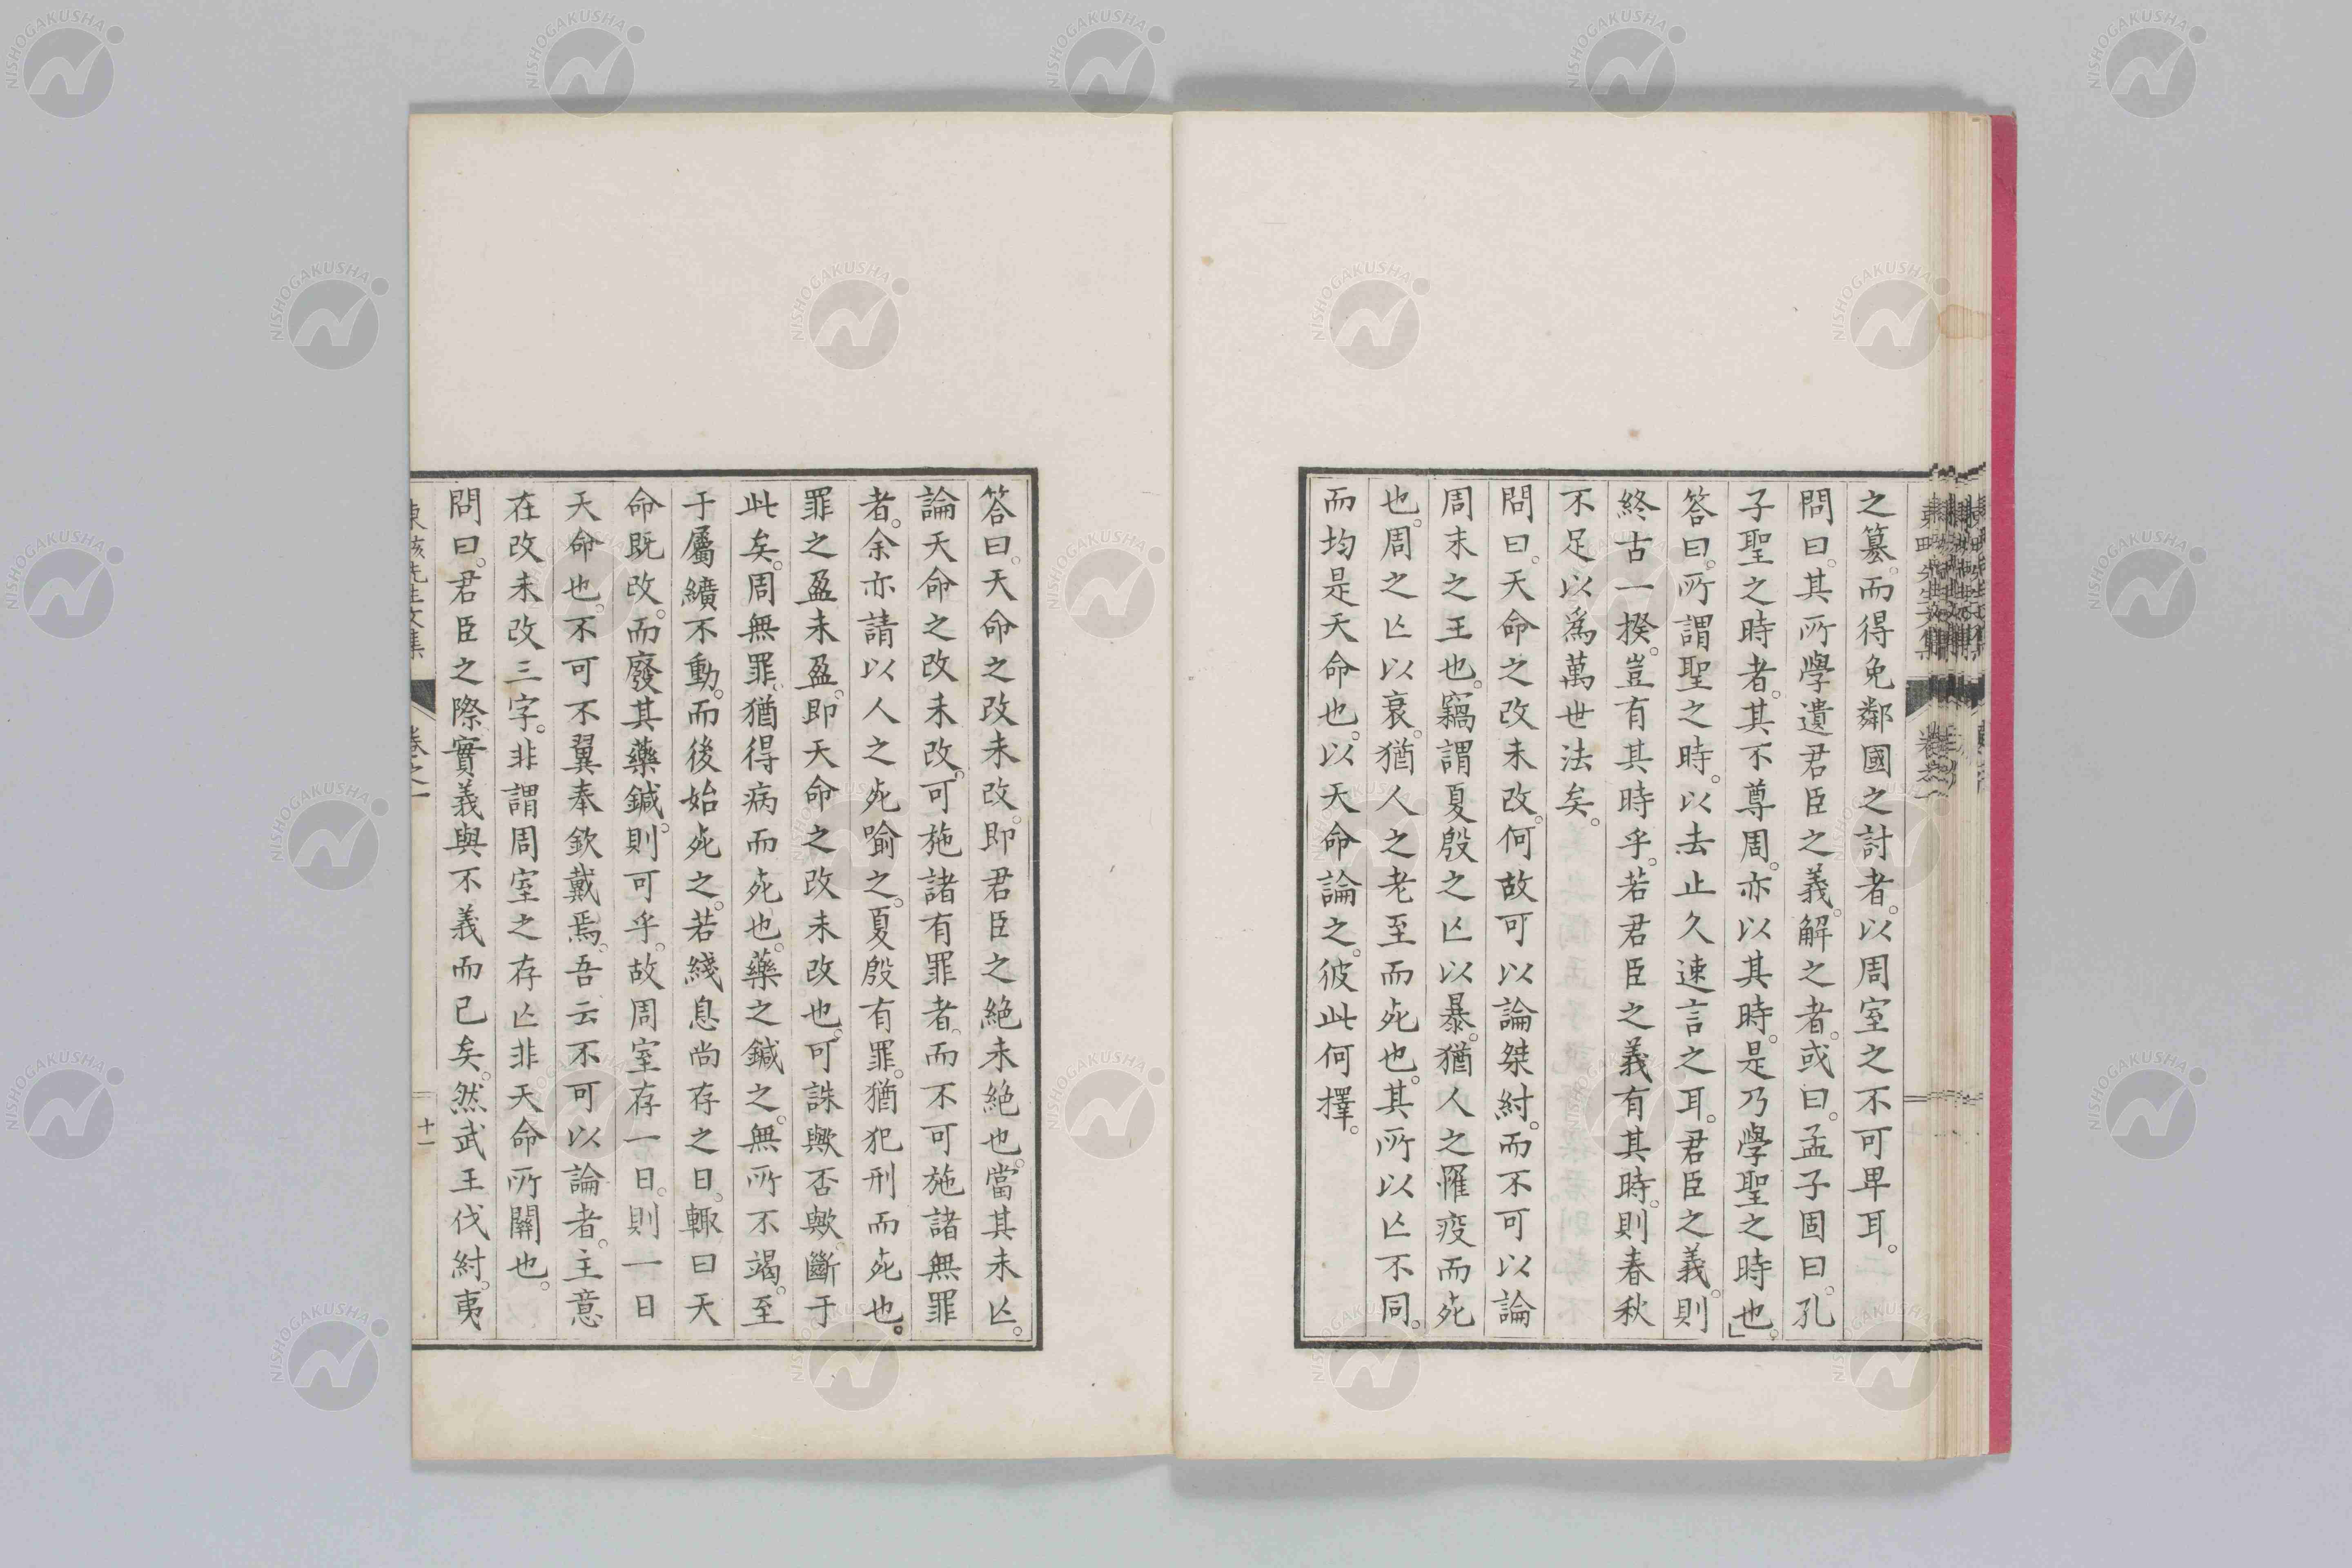 之簒。而得免鄰國之討者。以周室之不可卑耳。
問曰。其所學遺君臣之義。解之者。或曰。孟子固曰。孔
子聖之時者。其不尊周。亦以其時。是乃學聖之時也。」
答曰。所謂聖之時。以去止久速言之耳。君臣之義。則
終古一揆。豈有其時乎。若君臣之義有其時。則春秋
不足以爲萬世法矣。
問曰。天命之改未改。何故可以論桀紂。而不可以論
周末之王也。竊謂夏殷之亾以暴。猶人之罹疫而死
也。周之亾以衰。猶人之老至而死也。其所以亾不同。
而均是天命也。以天命論之。彼此何擇。
答曰。天命之改未改。即君臣之絶未絶也。當其未亾。
論天命之改未改。可施諸有罪者。而不可施諸無罪
者。余亦請以人之死喻之。夏殷有罪。猶犯刑而死也。
罪之盈未盈。即天命之改未改也。可誅歟否歟。斷于
此矣。周無罪。猶得病而死也。藥之鍼之。無所不竭。至
于屬纊不動。而後始死之。若綫息尚存之日。輒曰天
命既改。而廢其藥鍼。則可乎。故周室存一日。則一日
天命也。不可不翼奉欽戴焉。吾云不可以論者。主意
在改未改三字。非謂周室之存亾非天命所關也。
問曰。君臣之際實義與不義而已矣。然武王伐紂。夷
卷之一
十一
NISHOGAKUSHA